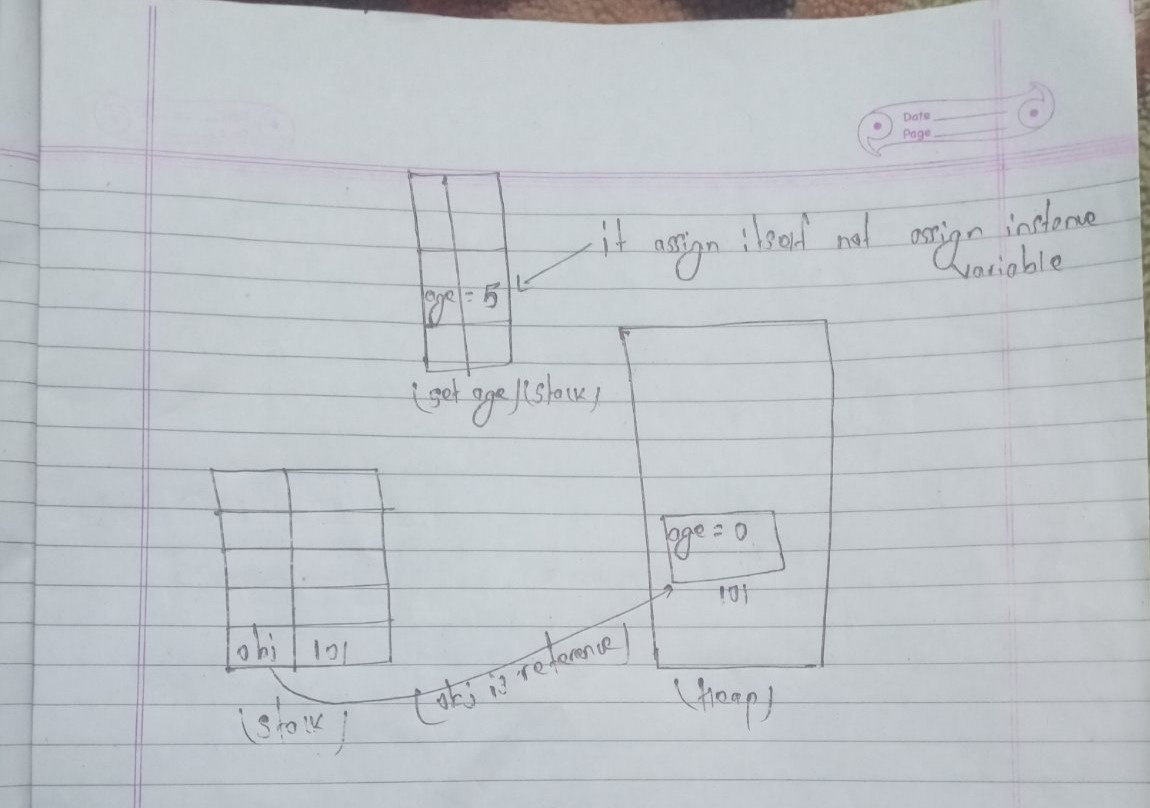 Date
Page
it assign itself not assign instance
variable
age = 5
(set age) (Stack)
age = 0
101
obj 101
(obj is reference)
(Stack)
(Heap)